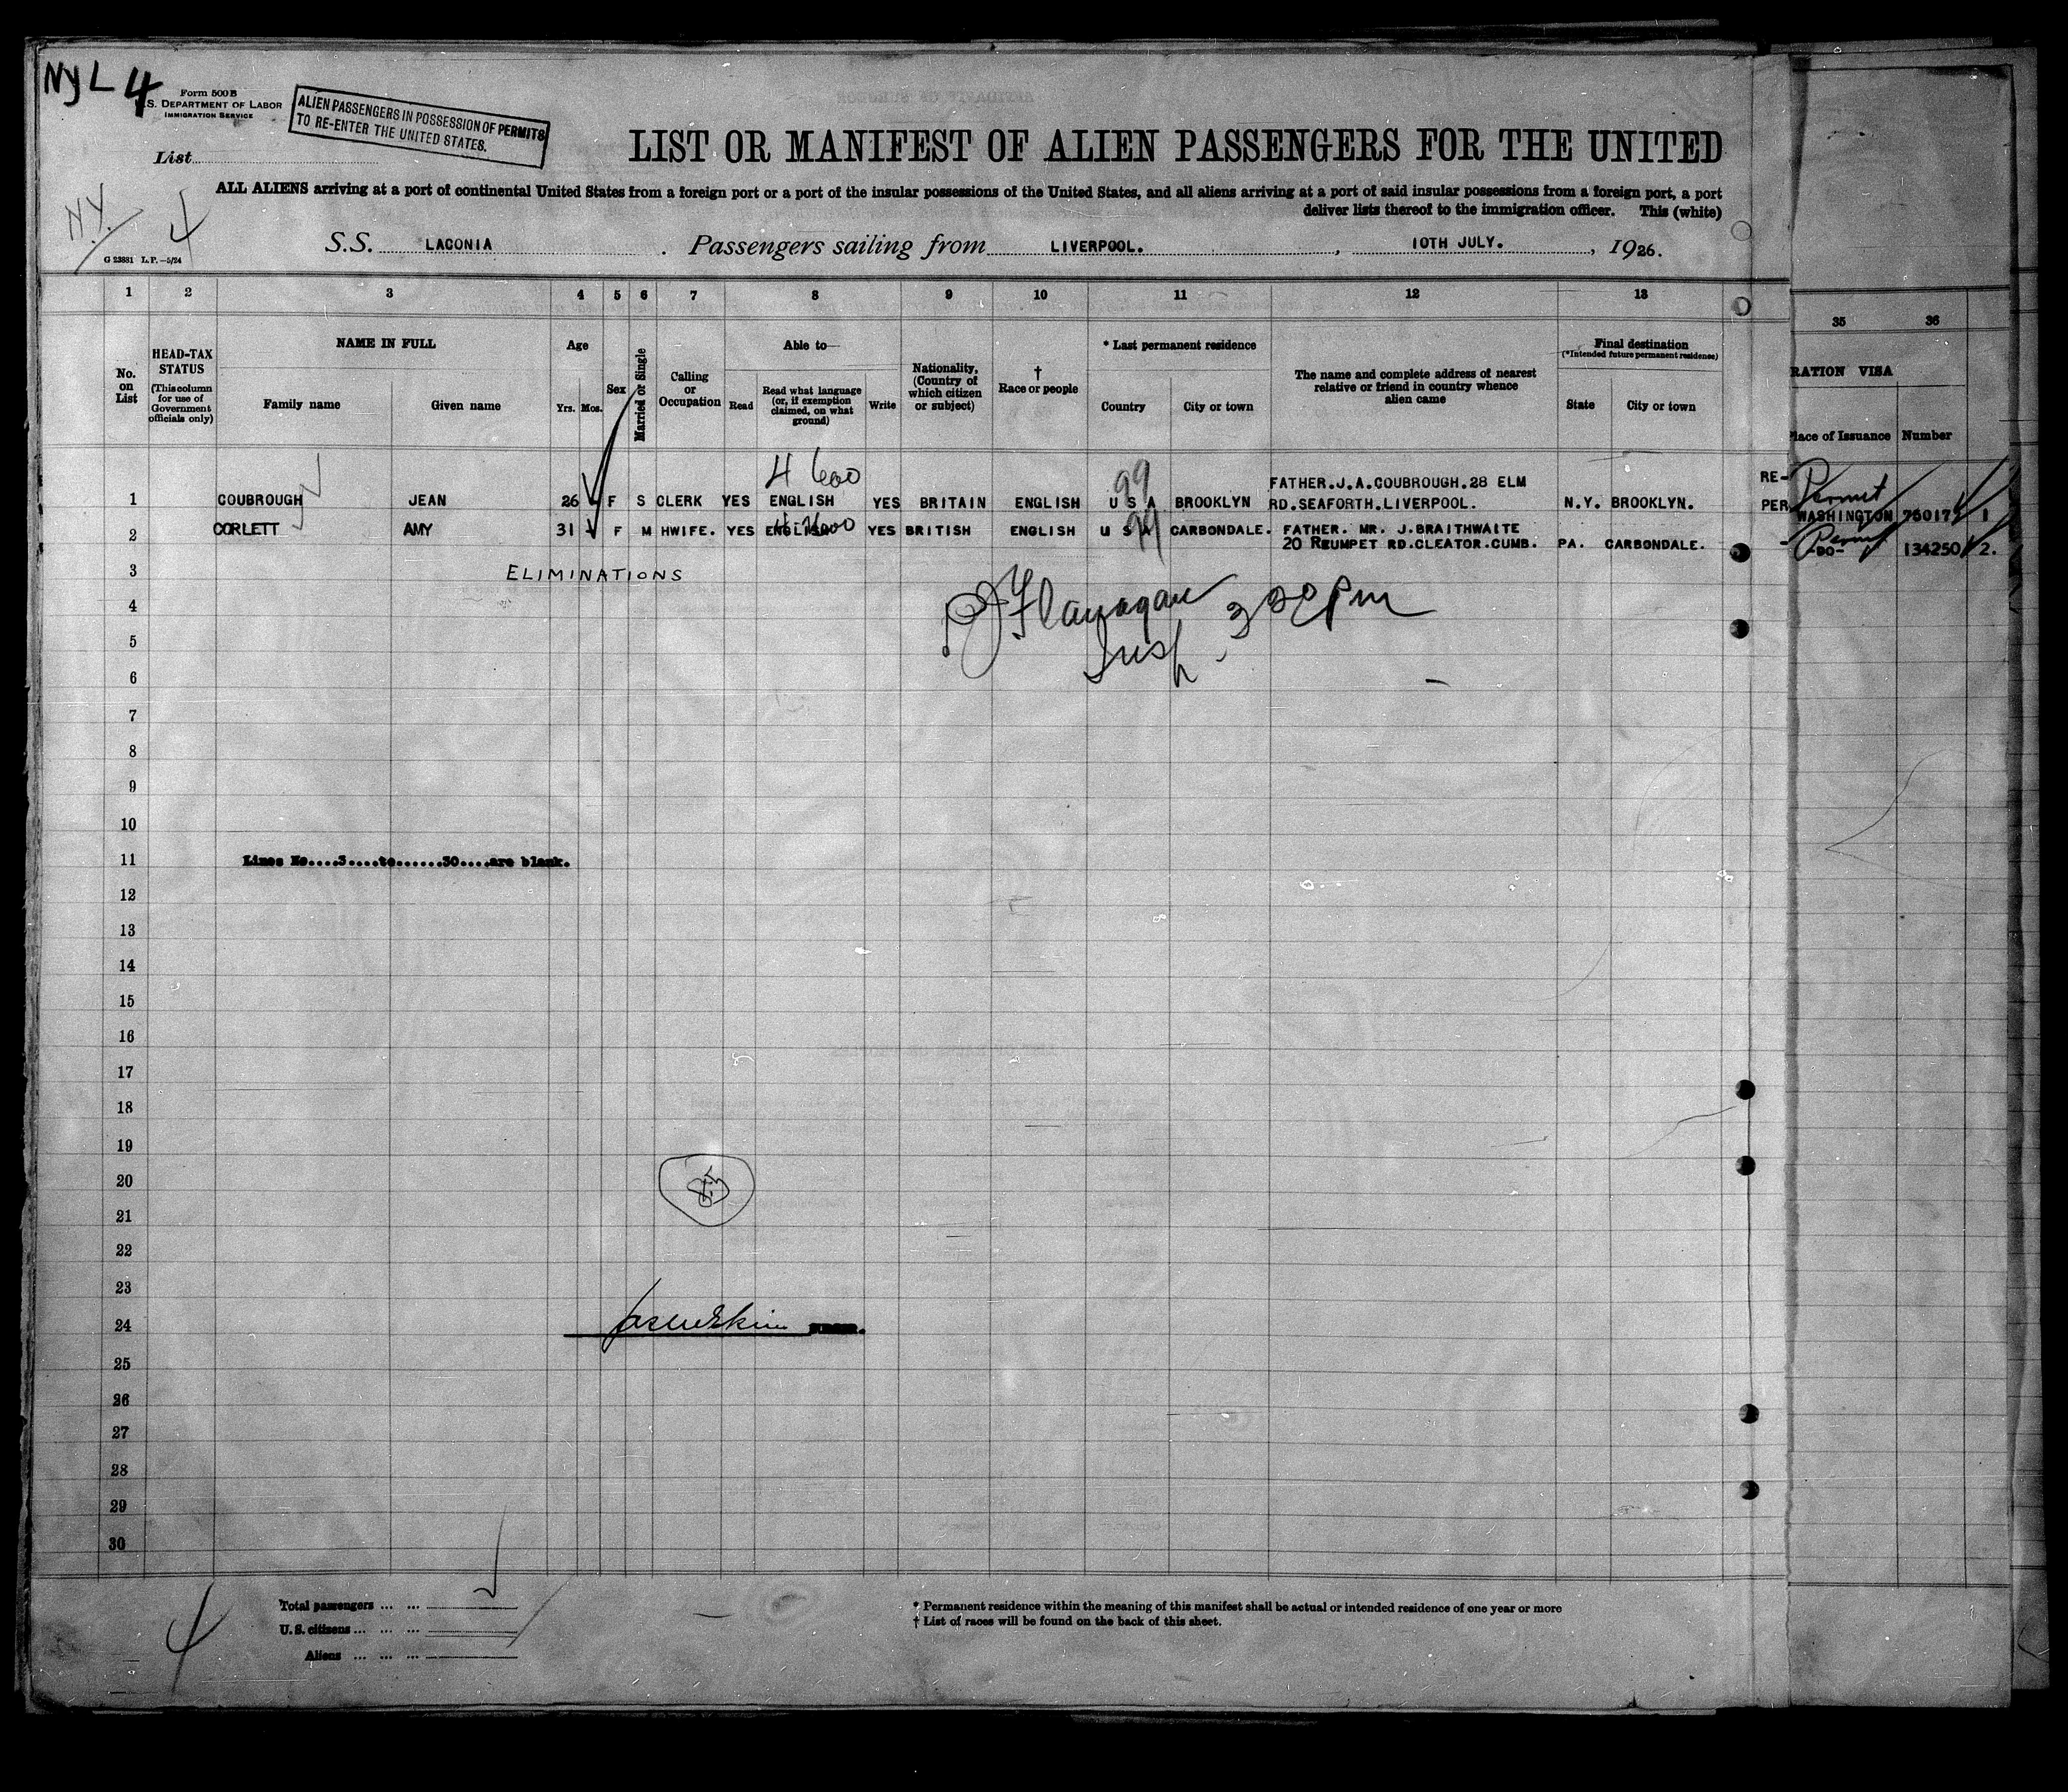 NYL 4
Form 500 B
U.S. DEPARTMENT OF LABOR
IMMIGRATION SERVICE
ALIEN PASSENGERS IN POSSESSION OF PERMITS
TO RE-ENTER THE UNITED STATES.
List
LIST OR MANIFEST OF ALIEN PASSENGERS FOR THE UNITED
ALL ALIENS arriving at a port of continental United States from a foreign port or a port of the insular possessions of the United States, and all aliens arriving at a port of said insular possessions from a foreign port, a port
deliver lists thereof to the immigration officer. This (white)
N.Y. 4
S.S. LACONIA . Passengers sailing from LIVERPOOL. , 10TH JULY. , 1926.
G 23881 L.P.—5/24
1 2 3 4 5 6 7 8 9 10 11 12 13 35 36
No. on List
HEAD-TAX STATUS
(This column for use of Government officials only)
NAME IN FULL
Family name Given name
Age
Yrs. Mos.
Sex
Married or Single
Calling or Occupation
Able to—
Read
Read what language (or, if exemption claimed, on what ground)
Write
Nationality, (Country of which citizen or subject)
† Race or people
* Last permanent residence
Country City or town
The name and complete address of nearest relative or friend in country whence alien came
Final destination
(*Intended future permanent residence)
State City or town
RATION VISA
Place of Issuance Number
4 600 99
FATHER.J.A.COUBROUGH.28 ELM RE- Permit
1 COUBROUGH JEAN 26 F S CLERK YES ENGLISH YES BRITAIN ENGLISH U S A BROOKLYN RD.SEAFORTH.LIVERPOOL. N.Y. BROOKLYN. PER WASHINGTON 75017 1
2 CORLETT AMY 31 F M HWIFE. YES ENGLISH YES BRITISH ENGLISH U S A CARBONDALE. FATHER. MR. J.BRAITHWAITE
20 REUMPET RD.CLEATOR.CUMB. PA. CARBONDALE. - Permit -DO- 134250 2.
3 ELIMINATIONS
Flanagan 3 20 Pm
Insp.
4
5
6
7
8
9
10
11 Lines No....3....to......30....are blank.
12
13
14
15
16
17
18
19
20
21
22
23
24
25
26
27
28
29
30
4
Total passengers ... ...
U.S. citizens ... ... ...
Aliens ... ... ...
* Permanent residence within the meaning of this manifest shall be actual or intended residence of one year or more
† List of races will be found on the back of this sheet.